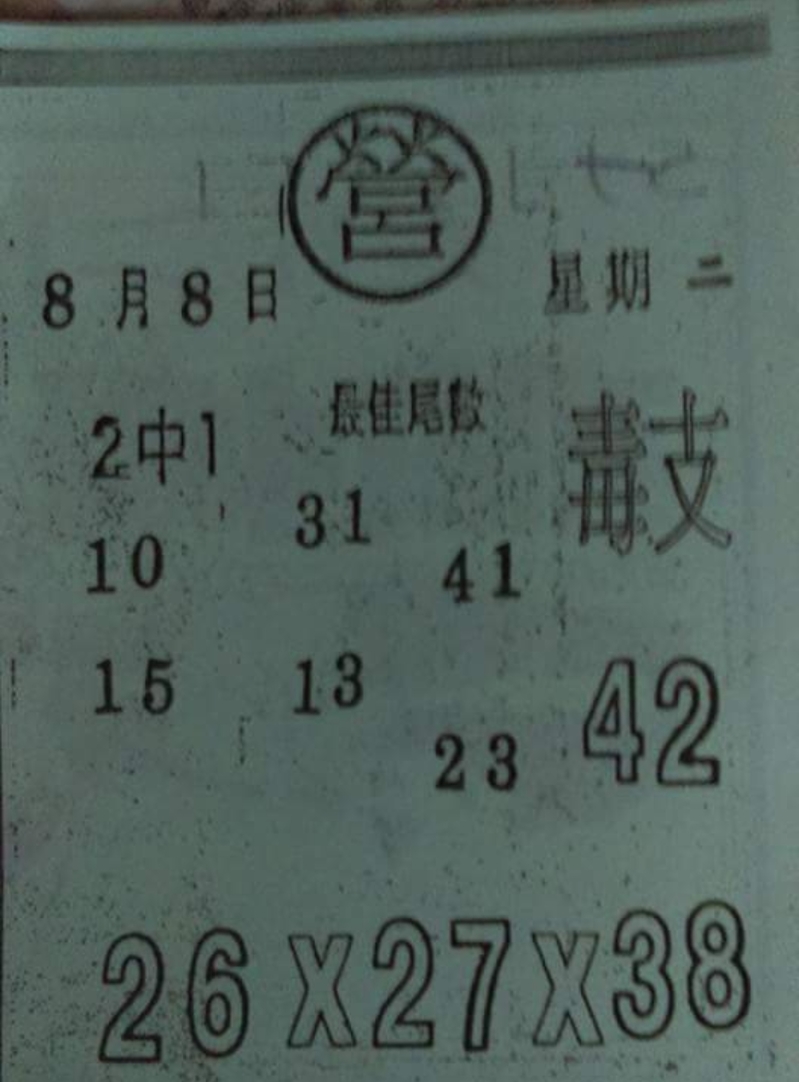 營
8月8日 星期二
2中1 最佳尾數 毒支
10 31 41
15 13 23 42
26X27X38